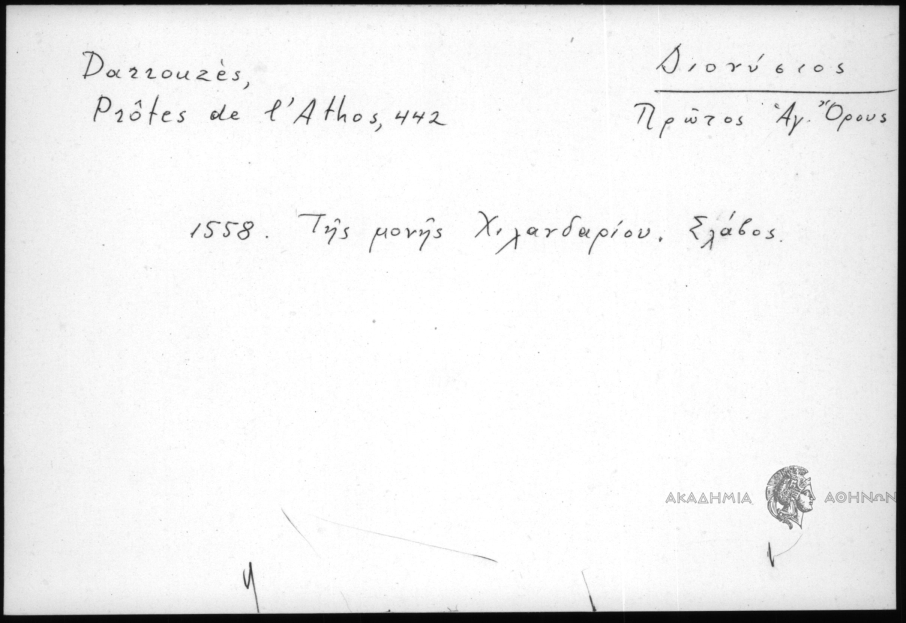 Darrouzès,
Prôtes de l'Athos, 442
Διονύσιος
Πρῶτος Ἁγ. Ὄρους
1558. Τῆς μονῆς Χιλανδαρίου. Σλάβος.
ΑΚΑΔΗΜΙΑ ΑΘΗΝΩΝ